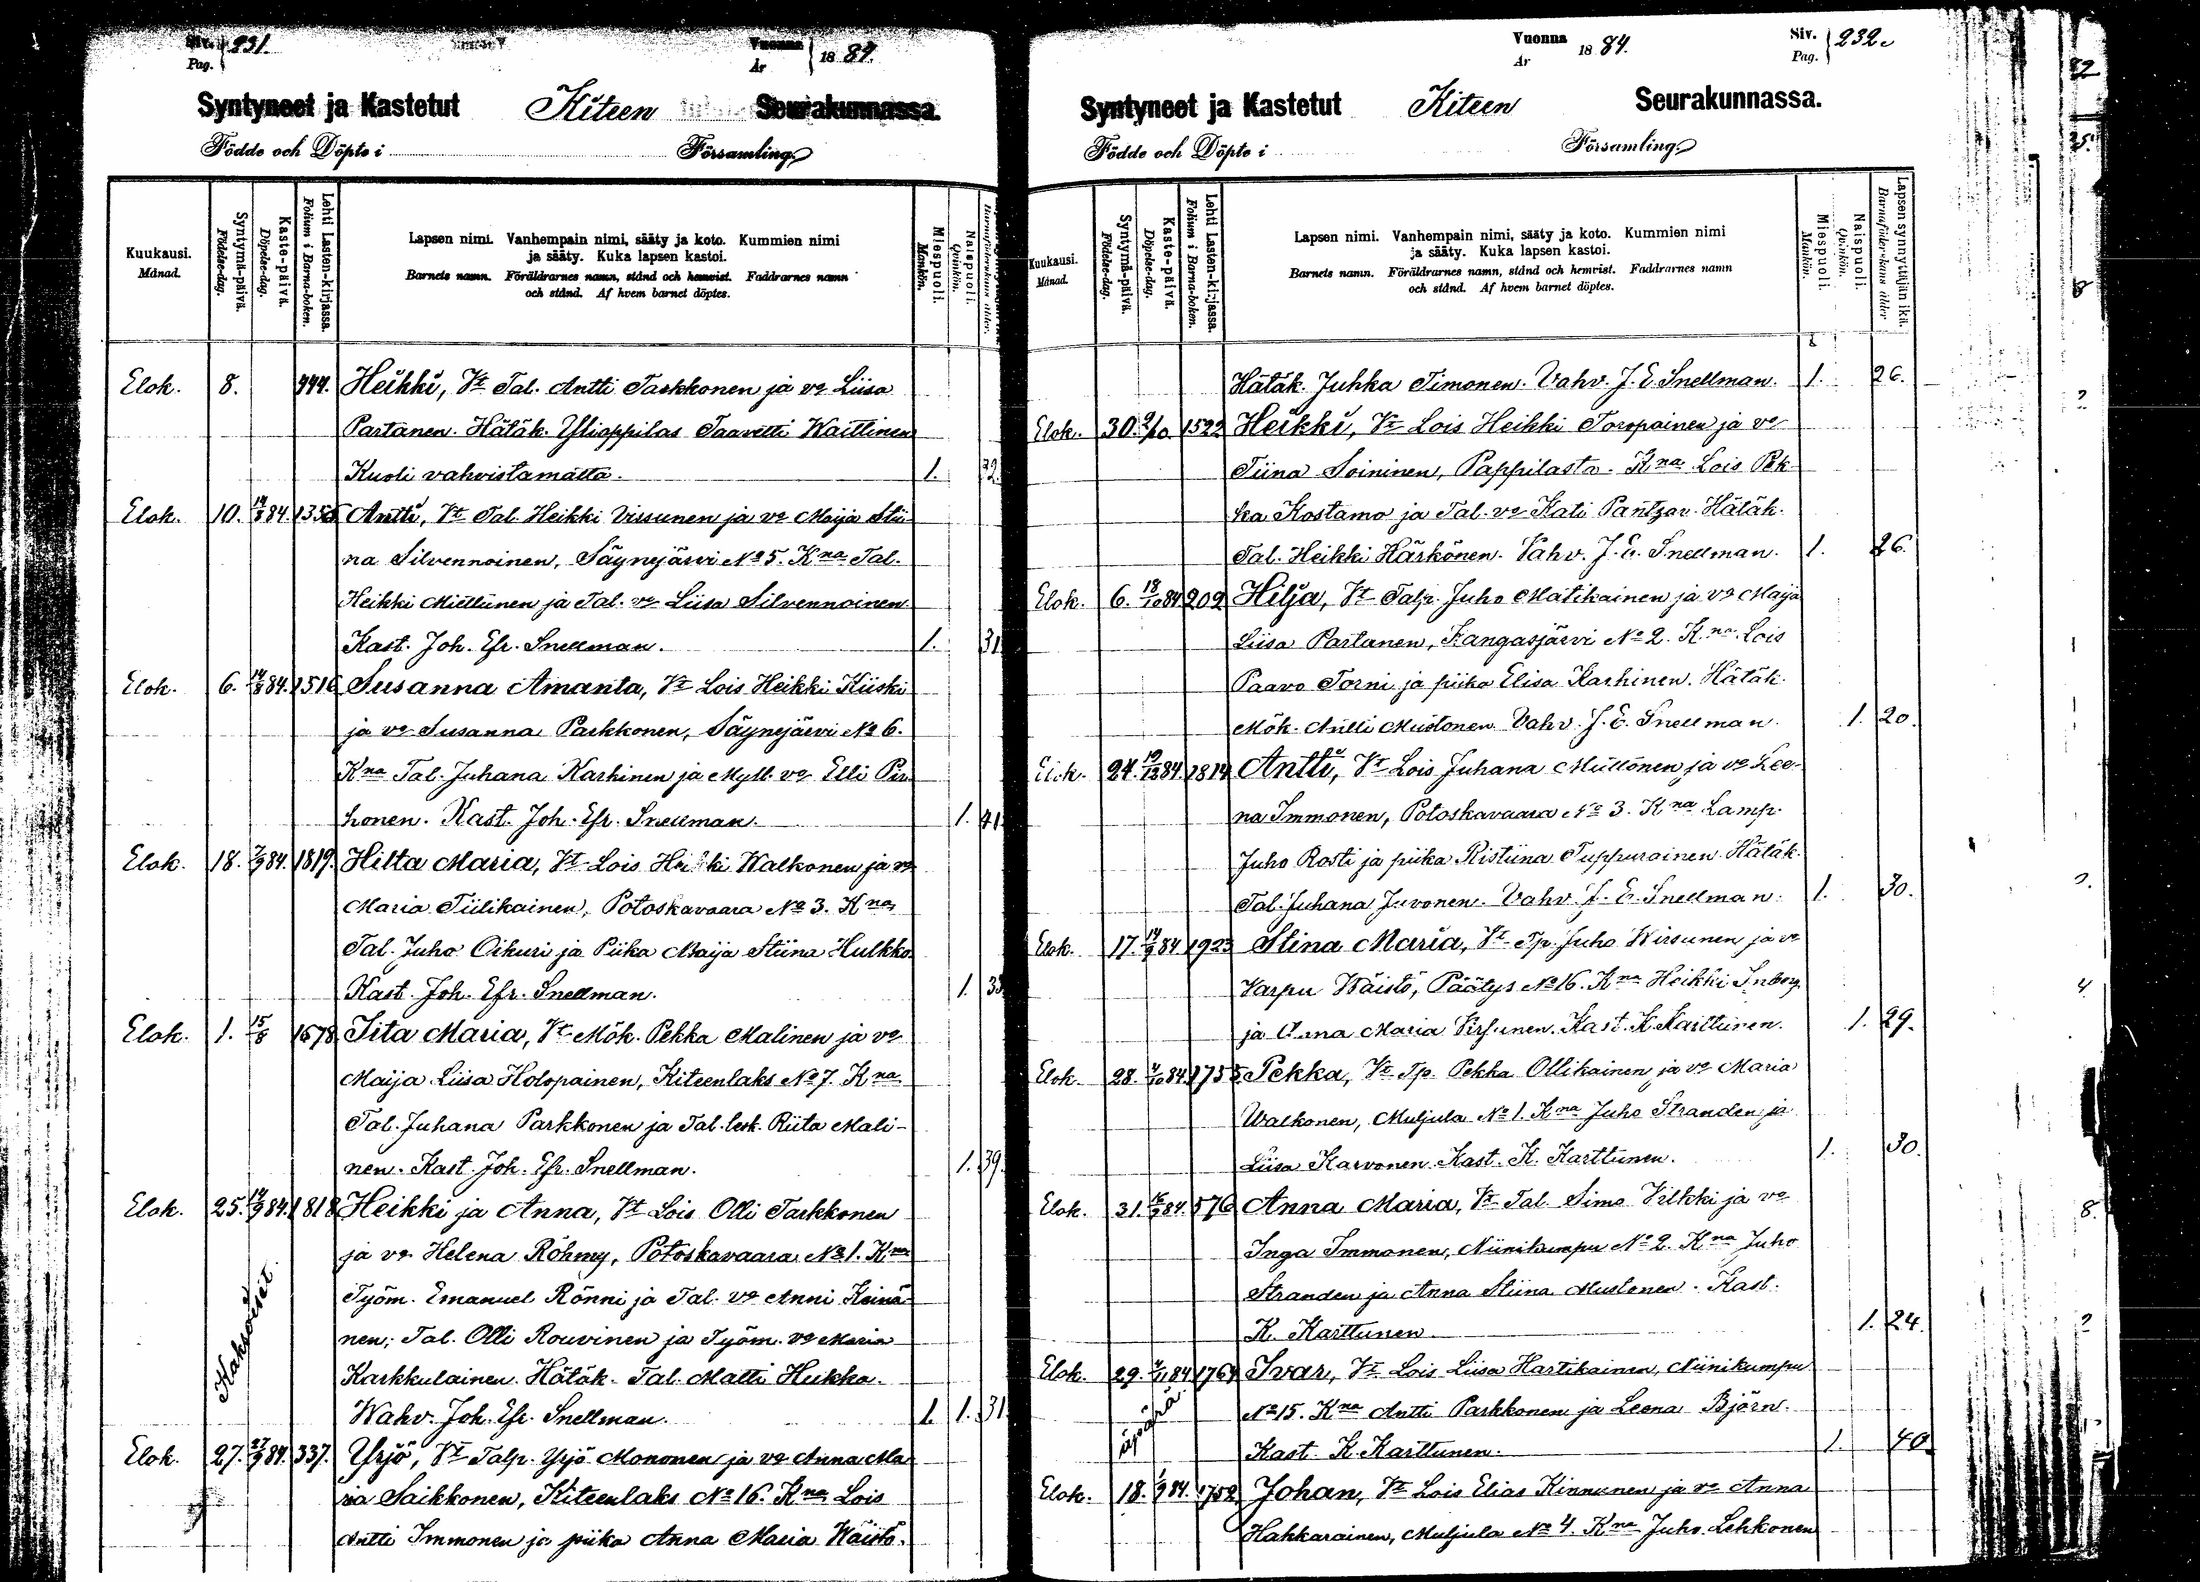 Siv. 231.
Pag.
Vuonna
År 1884.
Syntyneet ja Kastetut Kiteen Seurakunnassa.
Födde och Döpte i Församling
Kuukausi.
Månad.
Syntymä-päivä.
Födelse-dag.
Kaste-päivä.
Döpelse-dag.
Lehti Lasten-kirjassa.
Folium i Barna-boken.
Lapsen nimi. Vanhempain nimi, sääty ja koto. Kummien nimi
ja sääty. Kuka lapsen kastoi.
Barnets namn. Föräldrarnes namn, stånd och hemvist. Faddrarnes namn
och stånd. Af hvem barnet döptes.
Miespuoli.
Mankön.
Naispuoli.
Qvinkön.
Elok. 8. 444. Heikki, Vt Tal. Antti Tarkkonen ja vo Liisa
Partanen. Hätäk. Ylioppilas Taavetti Karttinen
Kuoli vahvistamatta. 1. 32
Elok. 10. 14/8 84. 1356 Antti, Vt Tal. Heikki Virsunen ja vo Maija Sti-
na Silvennoinen, Säynejärvi No 5. Kna Tal.
Heikki Miettinen ja Tal. vo Liisa Silvennoinen
Kast. Joh. Efr. Snellman. 1. 31
Elok. 6. 14/8 84. 1516 Susanna Amanta, Vt Lois Heikki Kiiski
ja vo Susanna Parkkonen, Säynejärvi No 6.
Kna Tal. Juhana Karhinen ja Myll. vo Elli Pir-
honen. Kast. Joh. Efr. Snellman. 1. 41
Elok. 18. 7/9 84. 1819. Hilta Maria, Vt Lois Heikki Walkonen ja vo
Maria Tiilikainen, Potoskavaara No 3. Kna
Tal. Juho Oikuri ja Piika Maija Stiina Hulkko
Kast. Joh. Efr. Snellman. 1. 33
Elok. 1. 15/8 1678 Iita Maria, Vt Mök. Pekka Malinen ja vo
Maija Liisa Holopainen, Kiteenlaks No 7. Kna
Tal. Juhana Parkkonen ja Tal. lesk. Riita Mali-
nen. Kast. Joh. Efr. Snellman. 1. 39.
Elok. 25. 14/9 84. 1818 Heikki ja Anna, Vt Lois Olli Tarkkonen
ja vo Helena Röhmy, Potoskavaara No 1. Kna
Kaksoiset.
Työm. Emanuel Rönni ja Tal. vo Anni Keinä-
nen; Tal. Olli Rouvinen ja Työm. vo Maria
Karkkulainen. Hätäk. Tal. Matti Hukka.
Wahv. Joh. Efr. Snellman. 1. 1. 31
Elok. 27. 27/9 84. 337. Yrjö, Vt Talp. Yrjö Mononen ja vo Anna Ma
ria Saikkonen, Kiteenlaks No 16. Kna Lois
Antti Immonen ja piika Anna Maria Wäistö.
Vuonna
År 1884.
Siv. 232.
Pag.
Syntyneet ja Kastetut Kiteen Seurakunnassa.
Födde och Döpte i Församling
Kuukausi.
Månad.
Syntymä-päivä.
Födelse-dag.
Kaste-päivä.
Döpelse-dag.
Lehti Lasten-kirjassa.
Folium i Barna-boken.
Lapsen nimi. Vanhempain nimi, sääty ja koto. Kummien nimi
ja sääty. Kuka lapsen kastoi.
Barnets namn. Föräldrarnes namn, stånd och hemvist. Faddrarnes namn
och stånd. Af hvem barnet döptes.
Miespuoli.
Mankön.
Naispuoli.
Qvinkön.
Lapsen synnyttäjän ikä.
Barnaföderskans ålder
Hätäk. Juhka Timonen. Vahv. J. E. Snellman. 1. 26.
Elok. 30. 9/10 1522 Heikki, Vt Lois Heikki Toropainen ja vo
Tiina Soininen, Pappilasta. Kna Lois Pek-
ka Kostamo ja Tal. vo Kati Pantzar. Hätäk.
Tal. Heikki Härkönen. Vahv. J. E. Snellman. 1. 26.
Elok. 6. 18/10 84 209 Hilja, Vt Talp. Juho Matikainen ja vo Maija
Liisa Partanen, Kangasjärvi No 2. Kna Lois
Paavo Torni ja piika Elisa Karhinen. Hätäk.
Mök. Antti Mustonen. Vahv. J. E. Snellman. 1. 20.
Elok. 24. 19/12 84. 1814 Antti, Vt Lois Juhana Miettönen ja vo Lee-
na Immonen, Potoskavaara No 3. Kna Lamp.
Juho Rosti ja piika Ristiina Tuppurainen. Hätäk.
Tal. Juhana Juvonen. Vahv. J. E. Snellman. 1. 30.
Elok. 17. 14/9 84 1923 Stina Maria, Vt Tp. Juho Wirsunen ja vo
Varpu Wäistö, Päätys No 16. Kna Heikki Inberg
ja Anna Maria Virsunen. Kast. K. Karttunen. 1. 29.
Elok. 28. 4/10 84. 1755 Pekka, Vt Tp. Pekka Ollikainen ja vo Maria
Walkonen, Muljula No 1. Kna Juho Stranden ja
Liisa Karvonen. Kast. K. Karttunen. 1. 30.
Elok. 31. 16/9 84. 576 Anna Maria, Vt Tal. Simo Vilkki ja vo
Inga Immonen, Niinikumpu No 2. Kna Juho
Stranden ja Anna Stiina Mustonen. Kast.
K. Karttunen. 1. 24.
Elok. 29. 2/11 84 1764 Ivar, Vt Lois Liisa Hartikainen, Niinikumpu
äpärä
No 15. Kna Antti Parkkonen ja Leena Björn.
Kast. K. Karttunen. 1. 40
Elok. 18. 1/9 84. 1752 Johan, Vt Lois Elias Kinnunen ja vo Anna
Hakkarainen, Muljula No 4. Kna Juho Lehkonen